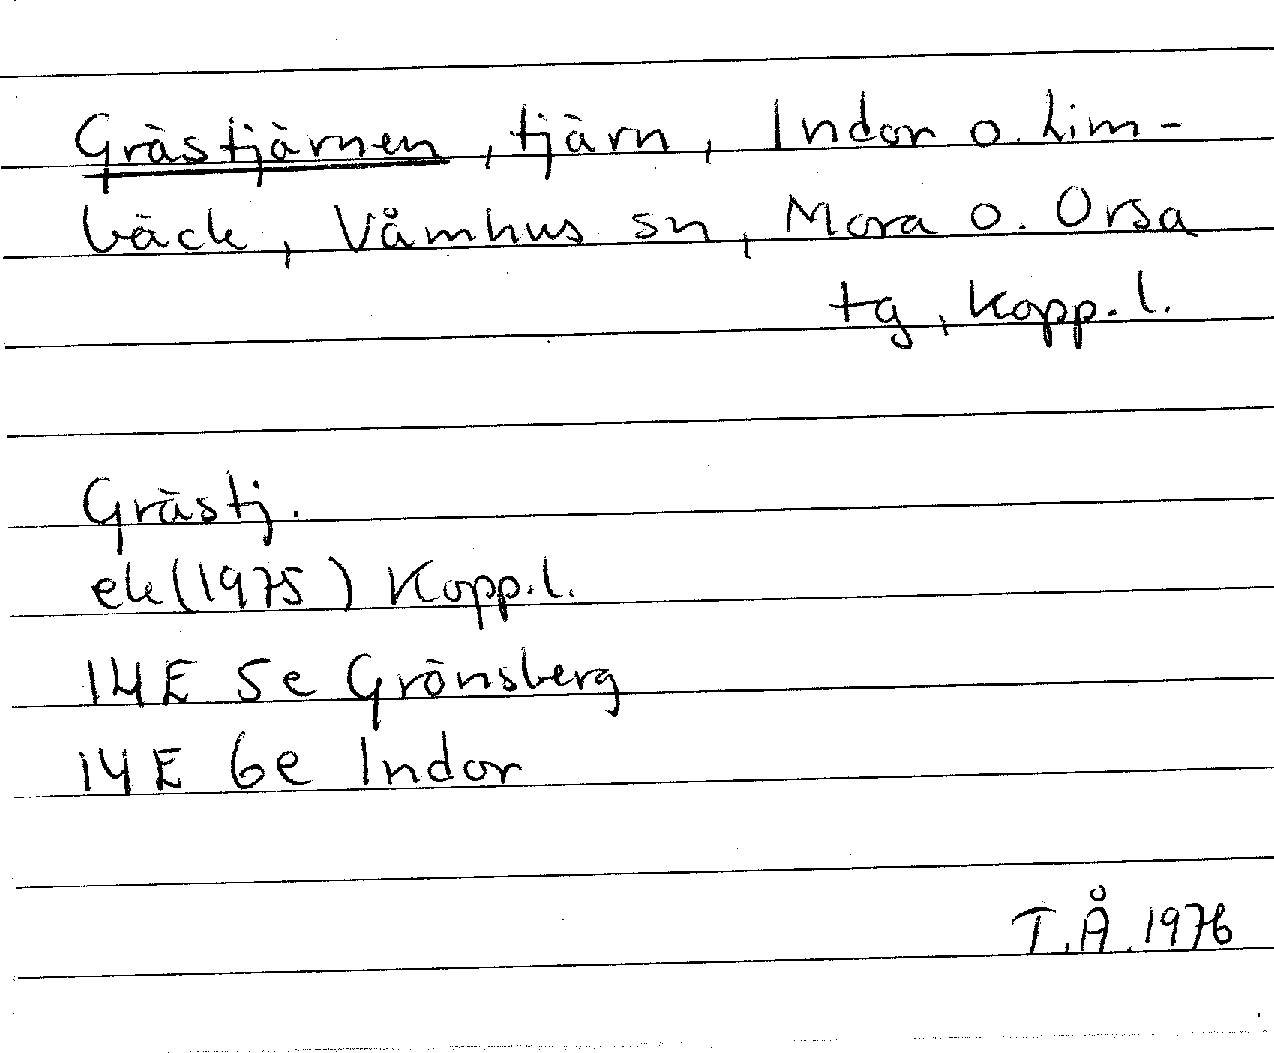 Grästjärnen, tjärn, Indor o. Lim-
bäck, Våmhus sn, Mora o. Orsa
tg, Kopp. l.
Grästj.
ek (1975) Kopp. l.
14E 5e Grönsberg
14E 6e Indor
T.Å. 1976